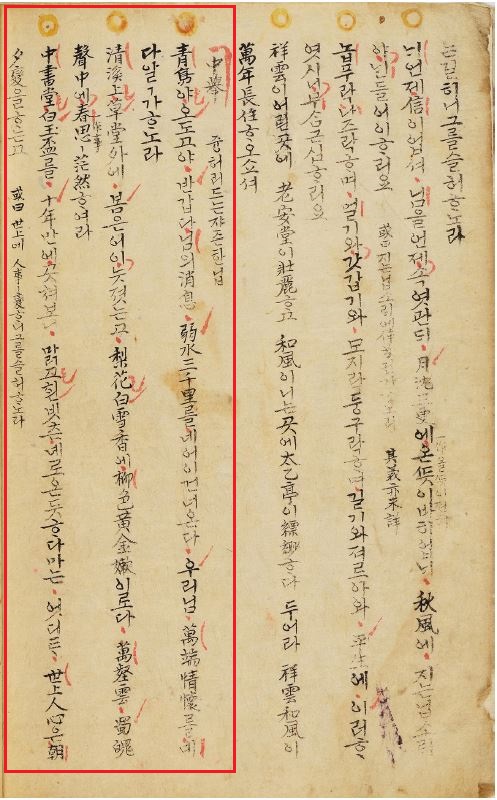 는일허니그를슬허ᄒᆞ노라
늬언제信이업셔 님을언제속엿관ᄃᆡ 月沈三更에온ᄯᅳᆺ이바히업늬 秋風에 지는닙소ᄅᆡ
야낸들어이ᄒᆞ리요 或曰 지는닙소리에
其義亦未詳
놉푸락나즈락ᄒᆞ며 멀기와갓갑기와 모지락둥구락ᄒᆞ며 길기와져르마와 平生에 이러ᄒᆞ
엿시니무슴근심ᄒᆞ리요
祥雲이어린곳에 老安堂이壯麗ᄒᆞ고 和風이니는곳에太乙亭이縹緲ᄒᆞ다 두어라 祥雲和風이
萬年長住ᄒᆞ오셔
中擧 중허리드는쟈즌한닙
靑鳥야오노고야 반갑다님의消息 弱水三千里를네어이건너온다 우리님 萬端情懷를네
다알가ᄒᆞ노라
淸溪上草堂外에 봄은어이느졋는고 梨花白雪香에柳色黃金嫩이로다 萬壑雲 蜀魄
聲中에春思ㅣ茫然ᄒᆞ여라
中書堂白玉盃를 十年만에곳쳐보니 맑고흰빗츤녜로온듯ᄒᆞ다마는 엇더튼 世上人心은朝
夕變을ᄒᆞ는고 或曰 世上에 人事ㅣ變ᄒᆞ니그를슬허ᄒᆞ노라